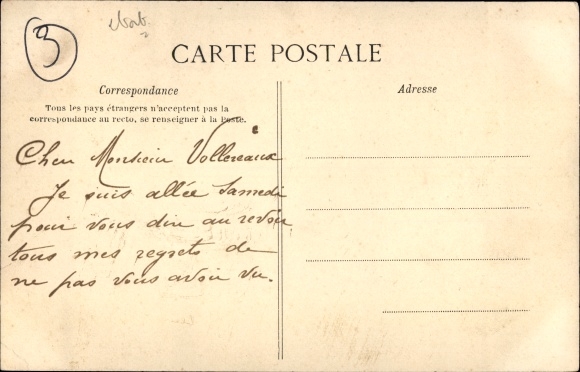 3
CARTE POSTALE
Correspondance
Adresse
Tous les pays étrangers n'acceptent pas la
correspondance au recto, se renseigner à la Poste.
Cher Monsieur Vollereaux
Je suis allée Samedi
pour vous dire au revoir
tous mes regrets de
ne pas vous avoir vu.